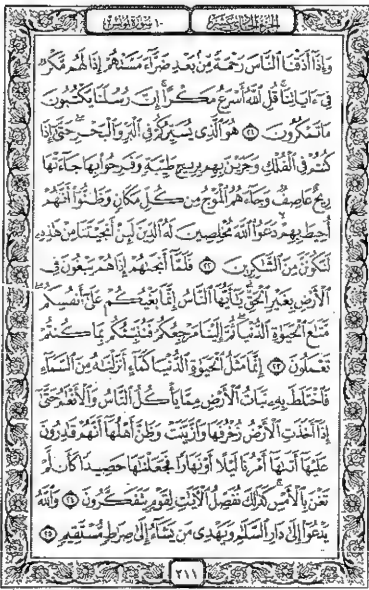 ١٠ سورة يونس
الجزء الحادي عشر
وَإِذَآ أَذَقْنَا ٱلنَّاسَ رَحْمَةً مِّنۢ بَعْدِ ضَرَّآءَ مَسَّتْهُمْ إِذَا لَهُم مَّكْرٌ
فِىٓ ءَايَاتِنَا ۚ قُلِ ٱللَّهُ أَسْرَعُ مَكْرًا ۚ إِنَّ رُسُلَنَا يَكْتُبُونَ
مَا تَمْكُرُونَ ٢١ هُوَ ٱلَّذِى يُسَيِّرُكُمْ فِى ٱلْبَرِّ وَٱلْبَحْرِ ۖ حَتَّىٰٓ إِذَا
كُنتُمْ فِى ٱلْفُلْكِ وَجَرَيْنَ بِهِم بِرِيحٍ طَيِّبَةٍ وَفَرِحُوا۟ بِهَا جَآءَتْهَا
رِيحٌ عَاصِفٌ وَجَآءَهُمُ ٱلْمَوْجُ مِن كُلِّ مَكَانٍ وَظَنُّوٓا۟ أَنَّهُمْ
أُحِيطَ بِهِمْ ۙ دَعَوُا۟ ٱللَّهَ مُخْلِصِينَ لَهُ ٱلدِّينَ لَئِنْ أَنجَيْتَنَا مِنْ هَٰذِهِۦ
لَنَكُونَنَّ مِنَ ٱلشَّٰكِرِينَ ٢٢ فَلَمَّآ أَنجَىٰهُمْ إِذَا هُمْ يَبْغُونَ فِى
ٱلْأَرْضِ بِغَيْرِ ٱلْحَقِّ ۗ يَٰٓأَيُّهَا ٱلنَّاسُ إِنَّمَا بَغْيُكُمْ عَلَىٰٓ أَنفُسِكُم ۖ
مَّتَٰعَ ٱلْحَيَوٰةِ ٱلدُّنْيَا ۖ ثُمَّ إِلَيْنَا مَرْجِعُكُمْ فَنُنَبِّئُكُم بِمَا كُنتُمْ
تَعْمَلُونَ ٢٣ إِنَّمَا مَثَلُ ٱلْحَيَوٰةِ ٱلدُّنْيَا كَمَآءٍ أَنزَلْنَٰهُ مِنَ ٱلسَّمَآءِ
فَٱخْتَلَطَ بِهِۦ نَبَاتُ ٱلْأَرْضِ مِمَّا يَأْكُلُ ٱلنَّاسُ وَٱلْأَنْعَٰمُ حَتَّىٰٓ
إِذَآ أَخَذَتِ ٱلْأَرْضُ زُخْرُفَهَا وَٱزَّيَّنَتْ وَظَنَّ أَهْلُهَآ أَنَّهُمْ قَٰدِرُونَ
عَلَيْهَآ أَتَىٰهَآ أَمْرُنَا لَيْلًا أَوْ نَهَارًا فَجَعَلْنَٰهَا حَصِيدًا كَأَن لَّمْ
تَغْنَ بِٱلْأَمْسِ ۚ كَذَٰلِكَ نُفَصِّلُ ٱلْءَايَٰتِ لِقَوْمٍ يَتَفَكَّرُونَ ٢٤ وَٱللَّهُ
يَدْعُوٓا۟ إِلَىٰ دَارِ ٱلسَّلَٰمِ وَيَهْدِى مَن يَشَآءُ إِلَىٰ صِرَٰطٍ مُّسْتَقِيمٍ ٢٥
٢١١